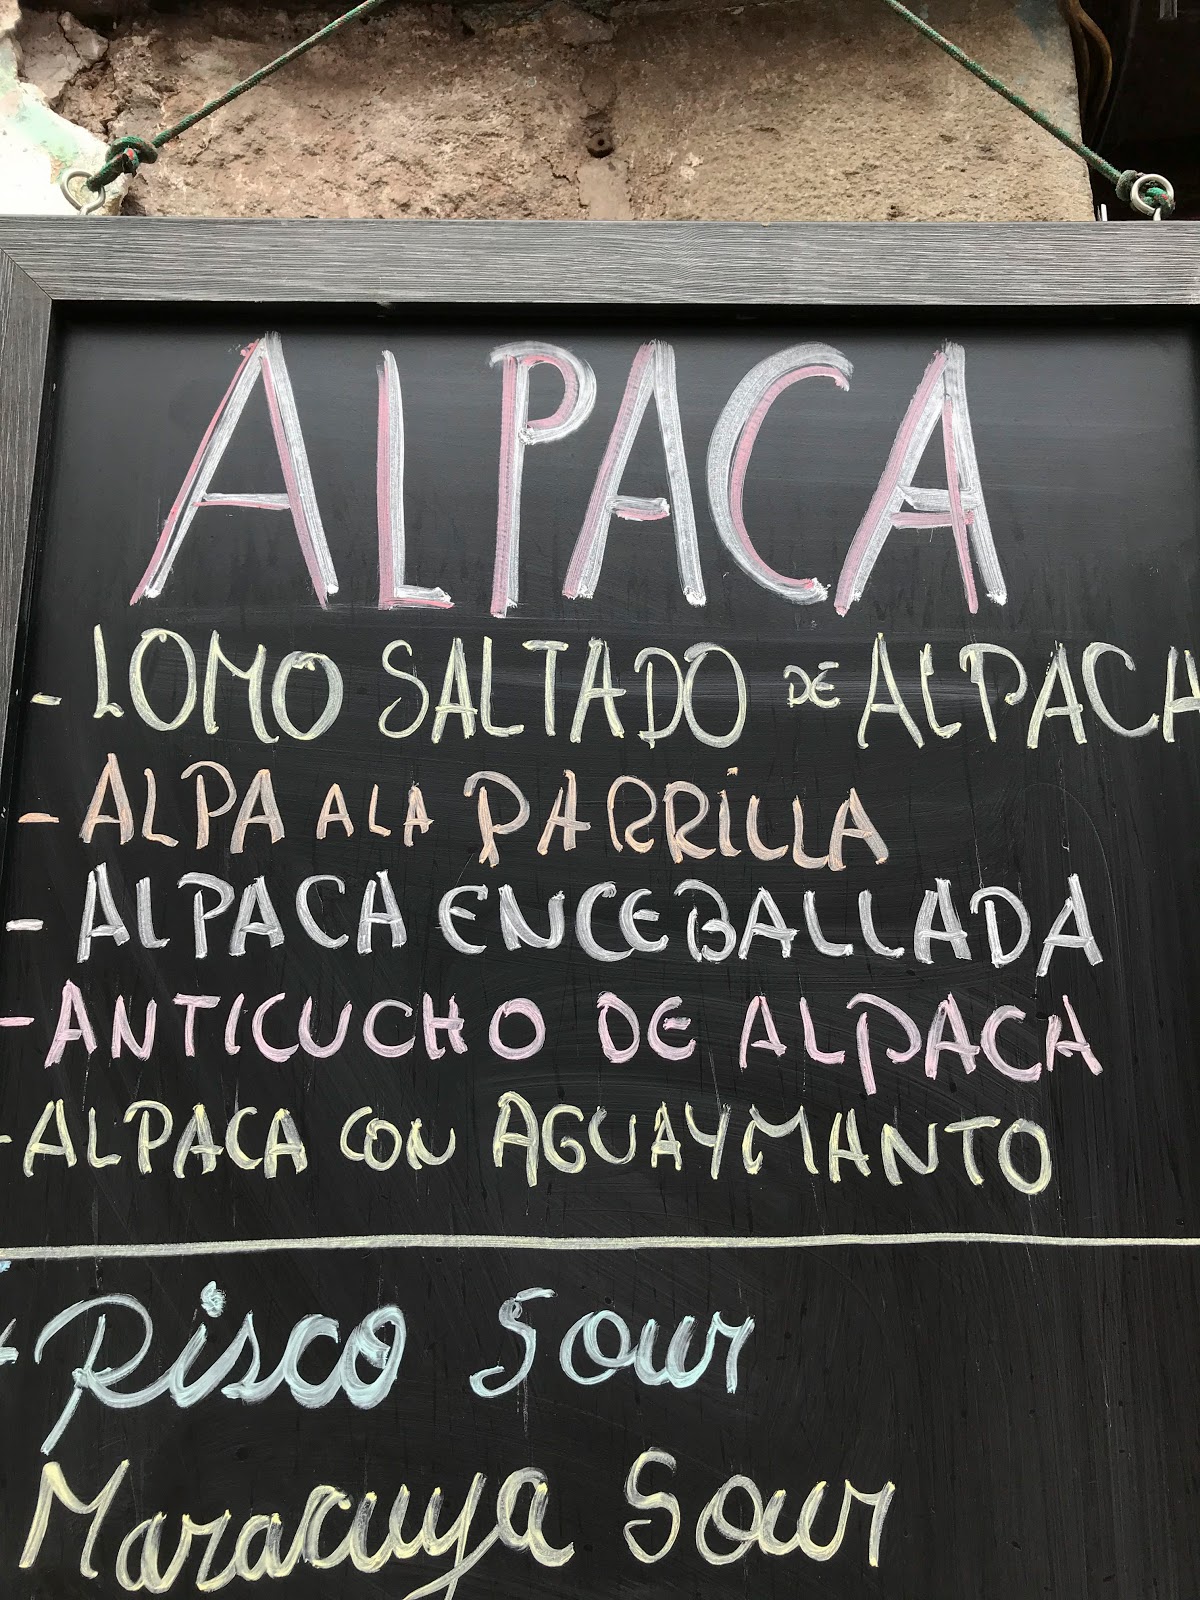 ALPACA
- LOMO SALTADO DE ALPACA
- ALPA A LA PARRiLLA
- ALPACA ENCEBALLADA
- ANTICUCHO DE ALPACA
- ALPACA CON AGUAYMANTO
Pisco Sour
Maracuya Sour